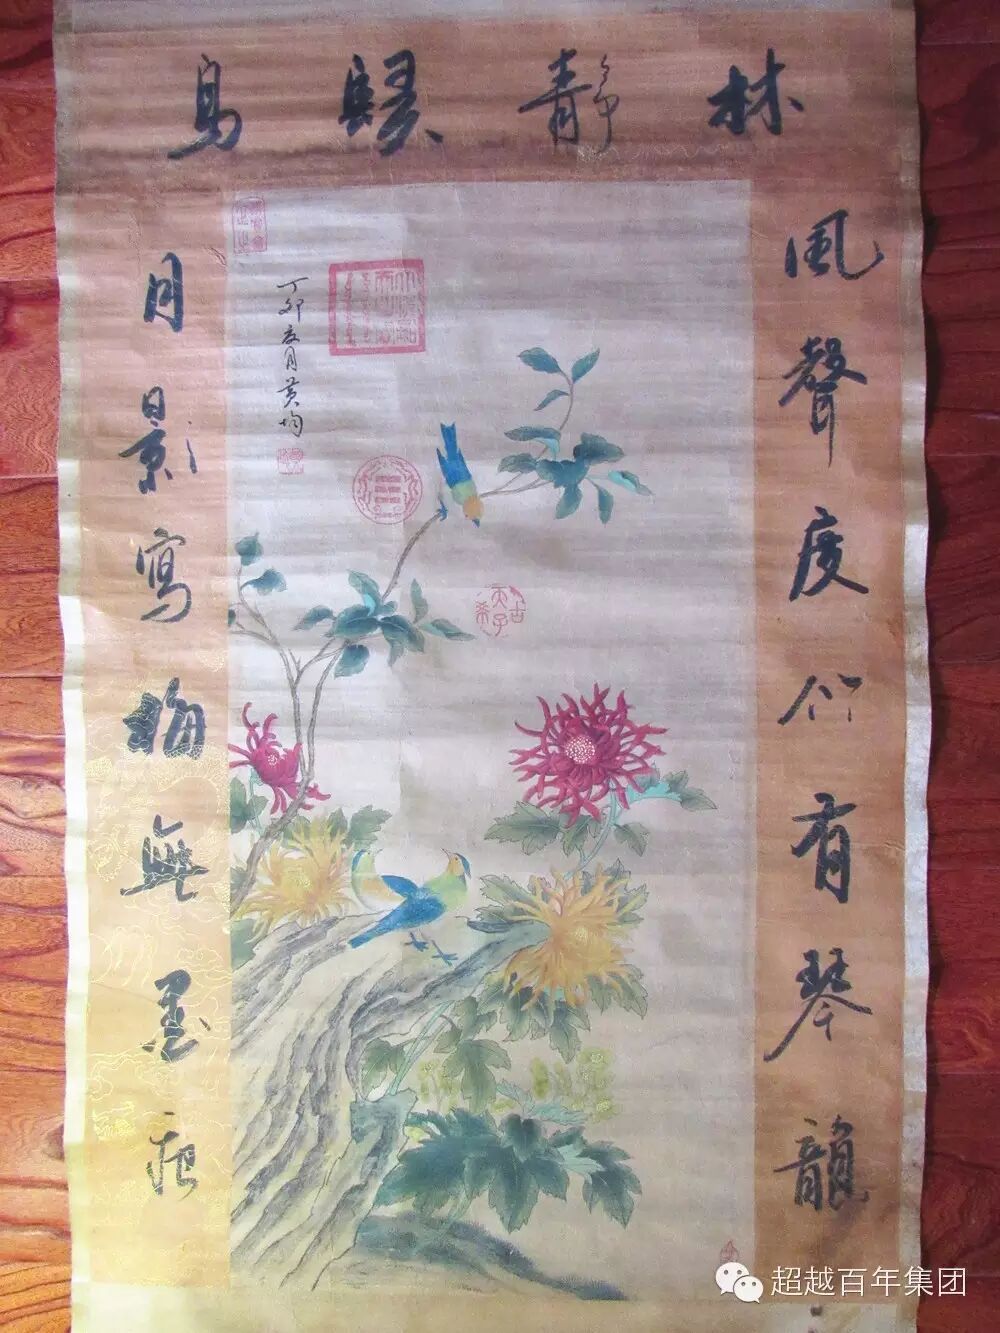 林靜歸鳥
風聲度竹有琴韻
月影寫梅無墨痕
丁卯
月黃均
古希天子
超越百年集团